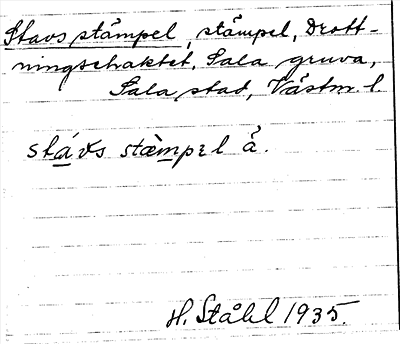 Stavs stämpel, stämpel, Drott-
ningschaktet, Sala gruva,
Sala stad, Västm. l.
stávs stæ̀mpel å.
H. Ståhl 1935.